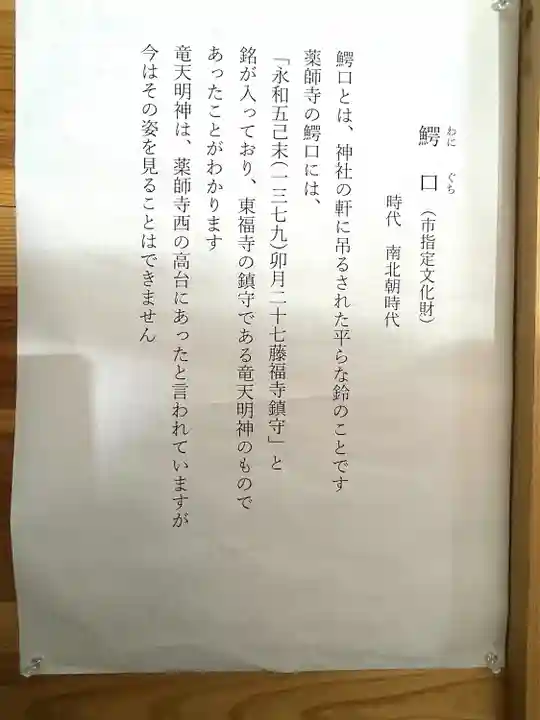 わに ぐち
鰐 口 （市指定文化財）
時代 南北朝時代
鰐口とは、神社の軒に吊るされた平らな鈴のことです
薬師寺の鰐口には、
「永和五己末(一三七九)卯月二十七藤福寺鎮守」と
銘が入っており、東福寺の鎮守である竜天明神のもので
あったことがわかります
竜天明神は、薬師寺西の高台にあったと言われていますが
今はその姿を見ることはできません